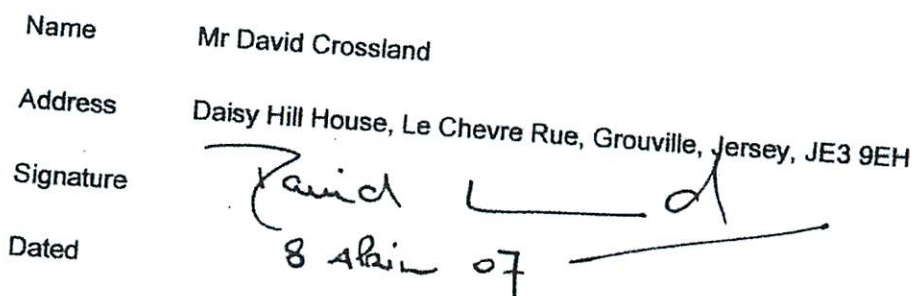 Name Mr David Crossland
Address Daisy Hill House, Le Chevre Rue, Grouville, Jersey, JE3 9EH
Signature David
Dated 8 07